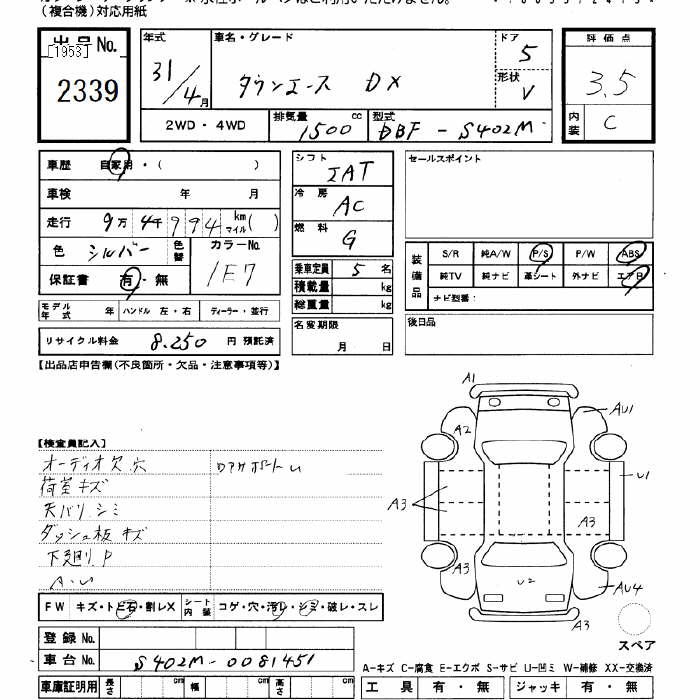 (複合機)対応用紙
出品No.
[1953]
2339
年式
31/4月
車名・グレード
タウンエース DX
ドア
5
形状
V
評価点
3.5
内装
C
2WD・4WD
排気量
1500 cc
型式
DBF-S402M
車歴 自家用・( )
車検 年 月
走行 9万 4千 9 9 4 km マイル( )
色 シルバー 色替
カラーNo.
1E7
保証書 有・無
モデル年式 年 ハンドル 左・右 ディーラー・並行
リサイクル料金 8,250 円 預託済
シフト
IAT
冷房
AC
燃料
G
乗車定員 5 名
積載量 kg
総重量 kg
名変期限
月 日
セールスポイント
装備品
S/R 純A/W P/S P/W ABS
純TV 純ナビ 革シート 外ナビ エアB
ナビ型番:
後日品
【出品店申告欄(不良箇所・欠品・注意事項等)】
【検査員記入】
オーディオ欠 穴
荷室キズ
天バリ シミ
ダッシュ板 キズ
下廻り P
A・U
A1
A2
AU1
U1
A3
A3
A3
A3
U2
AU4
A3
スペア
FW キズ・トビ石・割レX シート内装 コゲ・穴・汚レ・シミ・破レ・スレ
登録No.
車台No. S402M-0081451
車庫証明用 長さ cm 幅 cm 高さ cm
A-キズ C-腐食 E-エクボ S-サビ U-凹ミ W-補修 XX-交換済
工具 有・無 ジャッキ 有・無